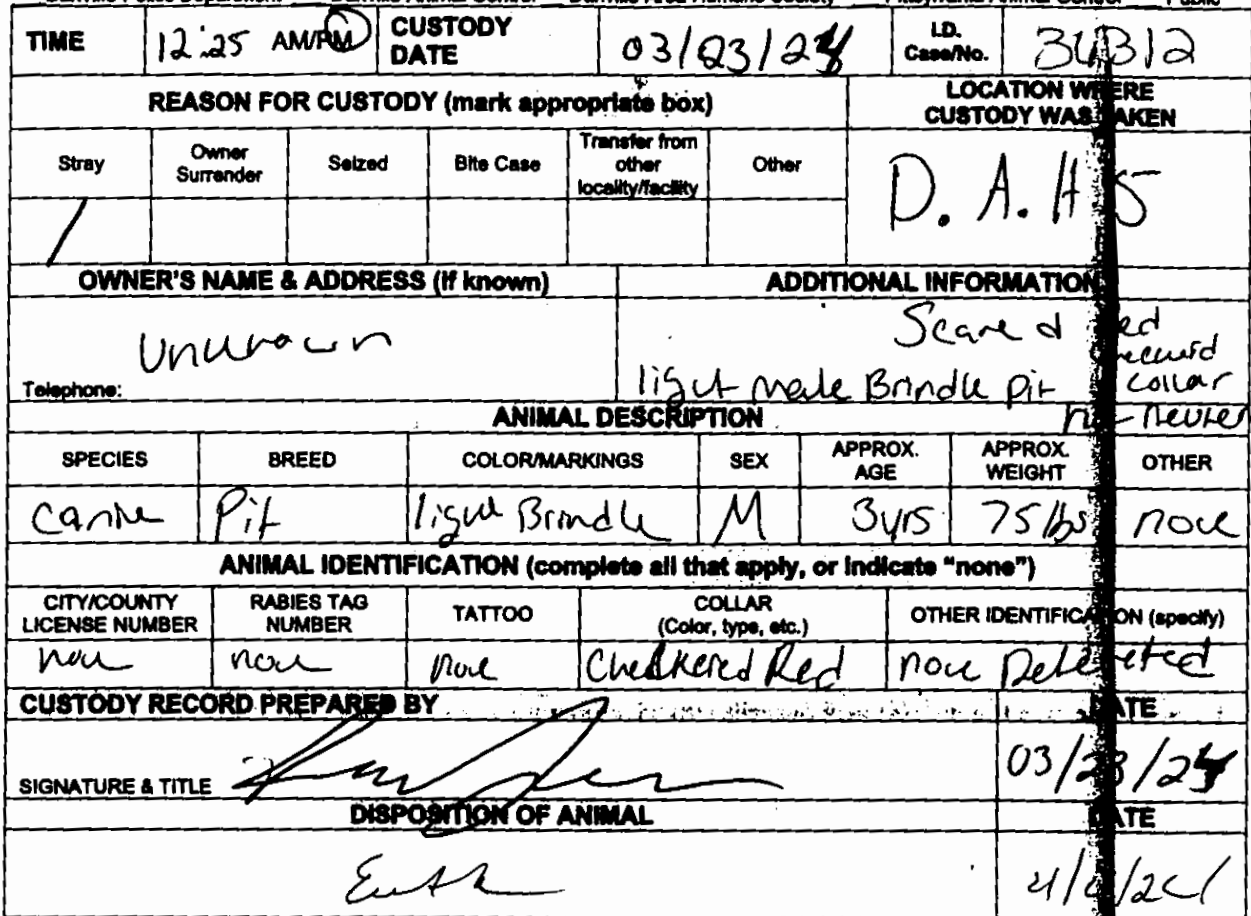 Danville Area Humane Society Public
TIME 12:25 AM/PM CUSTODY DATE 03/23/24 I.D. Case/No.
REASON FOR CUSTODY (mark appropriate box) LOCATION WHERE CUSTODY WAS TAKEN
Stray Owner Surrender Seized Bite Case Transfer from other locality/facility Other
/ D. A. H S
OWNER'S NAME & ADDRESS (if known) ADDITIONAL INFORMATION
Unknown Scared
Telephone: light male Brindle pit collar
ANIMAL DESCRIPTION
SPECIES BREED COLOR/MARKINGS SEX APPROX. AGE APPROX. WEIGHT OTHER
Canine Pit light Brindle M 3yrs 75 lbs none
ANIMAL IDENTIFICATION (complete all that apply, or indicate "none")
CITY/COUNTY LICENSE NUMBER RABIES TAG NUMBER TATTOO COLLAR (Color, type, etc.) OTHER IDENTIFICATION (specify)
none none none Checkered Red none
CUSTODY RECORD PREPARED BY DATE
SIGNATURE & TITLE 03/23/24
DISPOSITION OF ANIMAL DATE
Euth